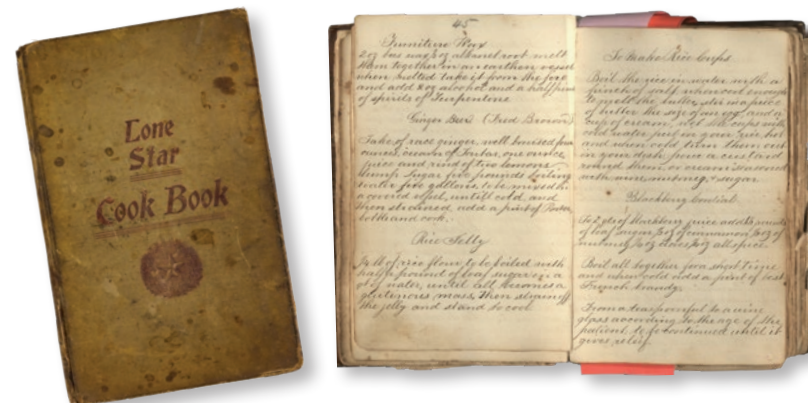 Lone
Star
Cook Book
45
Furniture Wax
2 oz bees wax, 2 oz alkanet root melt
them together in an earthen vessel
when melted take it from the fire
and add 2 oz alcohol and a half pint
of spirits of Turpentine
Ginger Beer (Fred Brown)
Take of race ginger well bruised four
ounces, cream of Tartar, one ounce
juice and rind of two lemons
Lump Sugar five pounds boiling
water five gallons, to be mixed in
a covered vessel, until cold, and
then strained, add a pint of
bottle and cork.
Rice Jelly
lb of rice flour to be boiled with
half a pound of loaf sugar in a
qt of water, until all becomes a
glutenous mass, then strain off
the jelly and stand to cool
To make Rice Cups
Boil the rice in water with a
pinch of salt when soft enough
to melt the butter, stir in a piece
of butter the size of an egg, and a
cup of cream, wet the cups with
cold water put in your rice hot
and when cold turn them out
in your dish, pour a custard
round them, or cream seasoned
with wine, nutmeg & sugar
Blackberry Cordial
To 2 qts of blackberry juice add
of loaf sugar, oz of cinnamon, oz of
nutmeg, oz cloves, oz all spice
Boil all together for a short time
and when cold add a pint of best
French brandy.
From a teaspoonful to a wine
glass according to the age of the
patient, to be continued until it
gives relief.